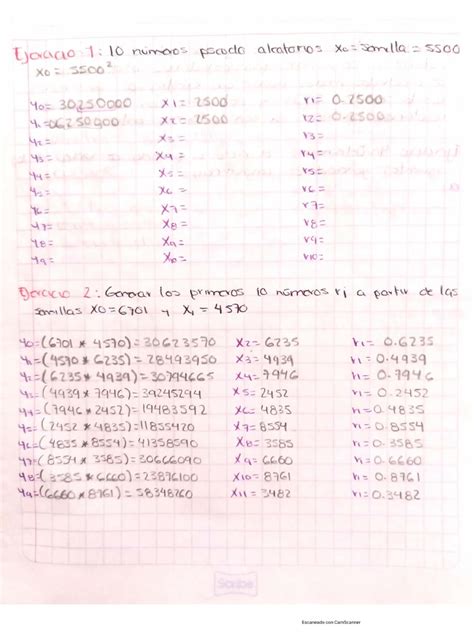 Ejercicio 1: 10 números pseudo aleatorios x0=semilla=5500
x0 = 5500²
y0= 30250000 x1= 2500 r1= 0.2500
y1=06250000 x2= 2500 r2= 0.2500
y2= x3= r3=
y3= x4= r4=
y4= x5= r5=
y5= x6= r6=
y6= x7= r7=
y7= x8= r8=
y8= x9= r9=
y9= x10= r10=
Ejercicio 2: Generar los primeros 10 números ri a partir de las
semillas x0=6701 y x1=4570
y0=(6701 * 4570)=30623570 x2= 6235 r1= 0.6235
y1=(4570*6235)=28493950 x3= 4939 r1= 0.4939
y2=(6235*4939)=30794665 x4= 7946 r1= 0.7946
y3=(4939*7946)=39245294 x5= 2452 r1= 0.2452
y4=(7946*2452)=19483592 x6= 4835 r1= 0.4835
y5=(2452*4835)=11855420 x7= 8554 r1= 0.8554
y6=(4835*8554)=41358590 x8= 3585 r1= 0.3585
y7=(8554*3585)=30666090 x9= 6660 r1= 0.6660
y8=(3585*6660)=23876100 x10= 8761 r1= 0.8761
y9=(6660*8761)=58348260 x11= 3482 r1= 0.3482
Scribe
Escaneado con CamScanner